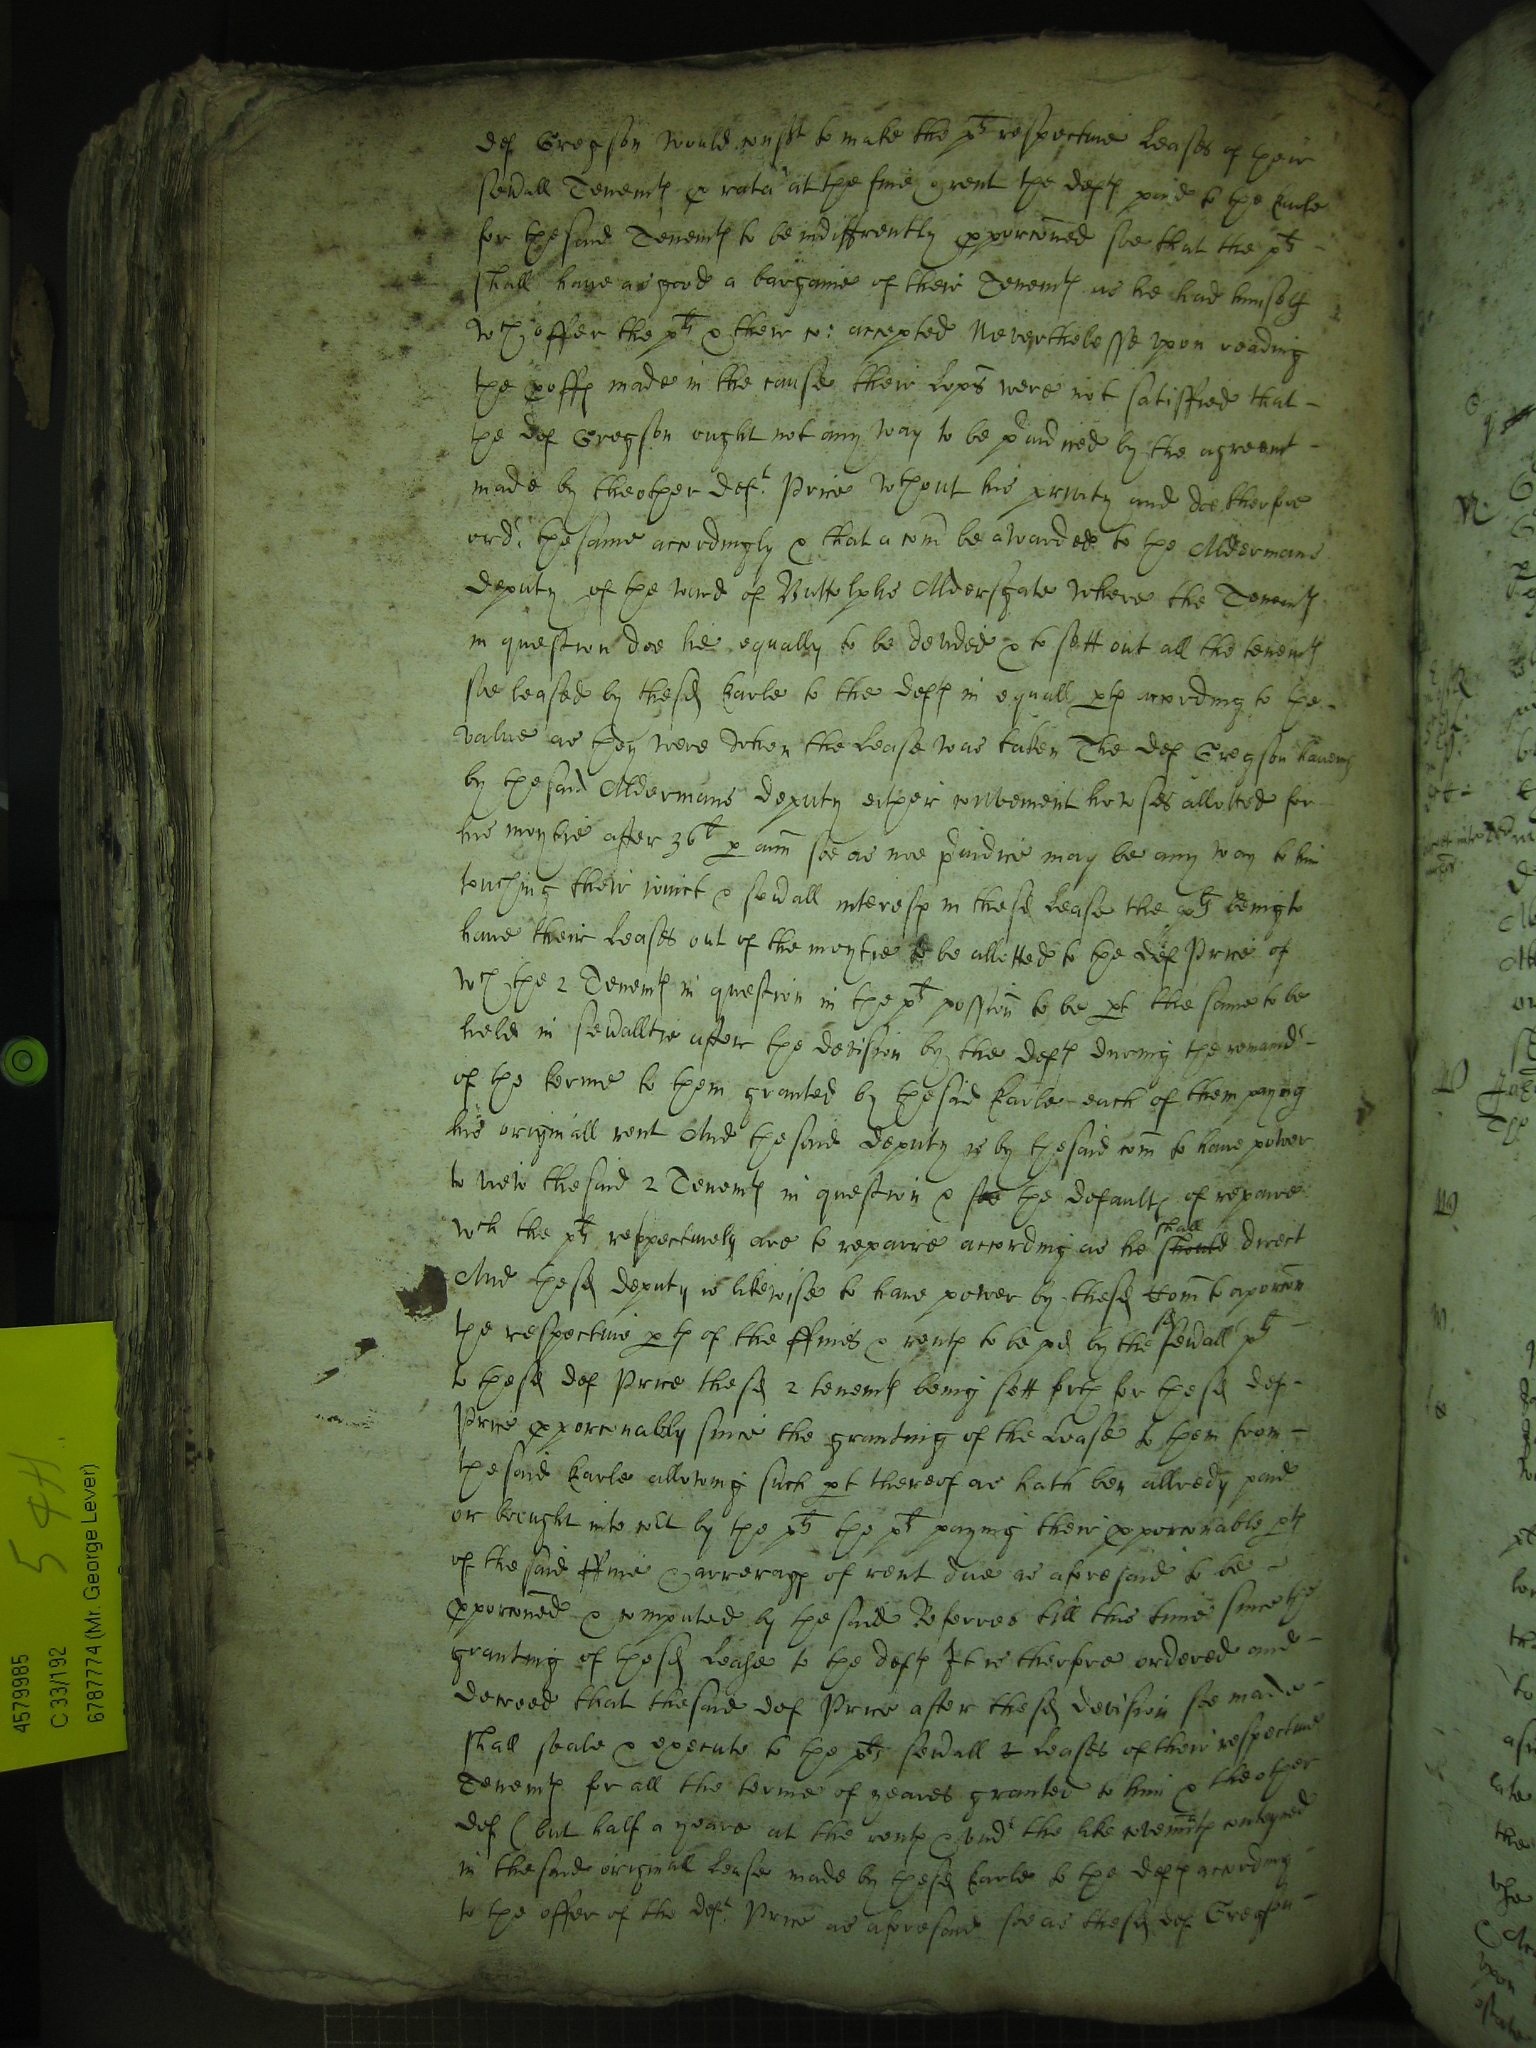 def Gregson would consent to make the plts respective leases of their
sevall Tenemts p rata at the fine & rent the defts paid to the Earle
for the said Tenemts to be indiffrently pporconed soe that the plts
shall have as good a bargaine of their Tenemts as he had himself
wch offer the plts & their co: accepted Neverthelesse upon reading
the proffs made in the cause their Lopps were not satisfied that
the def Gregson ought not any way to be piudiced by the agreemt
made by theother deft. Price wthout his privity and doe therfore
ordr. the same accordingly & that a com be awarded to the Aldermans
deputy of the ward of Buttolphs Aldersgate where the Tenemts
in question doe lie equally to be devided & to sett out all the tenemts
soe leased by the sd Earle to the defts in equall pts according to the
value as they were when the Lease was taken The def Gregson haveing
by the said Aldermans deputy either convement howses allotted for
his moytie after 36l p ann soe as noe piudice may be any way to him
touching their ioinct & sevall interest in the sd Lease the plts being to
have their Leases out of the moytie to be allotted to the def Price of
wch the 2 Tenemts in question in the plts possion to be pt the same to be
held in sevaltie after the devision by the defts during the remaindr
of the terme to them granted by the said Earle each of them paying
his originall rent And the said deputy is by the said com to have power
to view the said 2 Tenemts in question & see the defaults of repaire
wch the plts respectively are to repaire according as he shall should direct
And the sd deputy is likewise to have power by the sd Com to aporcon
the respective pts of the ffines & rents to be pd by the sd sevall plts
to the sd def Price the sd 2 tenemts being sett forth for the sd def
Price pporconably since the granting of the Lease to them from
the said Earle allowing such pt thereof as hath ben allredy paid
or brought into cort by the plts the plts paying their pporconable pts
of the said ffine & arrerages of rent due as aforesaid to be
pporconed & computed by the said Referree till this time since the
granting of the sd Lease to the defts It is therfore ordered and
decreed that the said def Price after the sd devision soe made
shall seale & execute to the plts sevall 2 Leases of their respective
Tenemts for all the terme of yeares granted to him & the other
def (but half a yeare at the rents & undr the like covennts conteyned
in the said originall Lease made by the sd Earle to the defts according
to the offer of the deft. Price as aforesaid soe as the sd def Gregson
54H.
4579985
C 33/192
6787774 (Mr. George Lever)